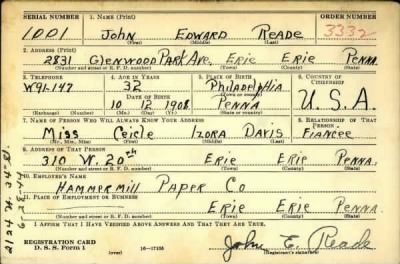 SERIAL NUMBER 1. NAME (Print) ORDER NUMBER
1001 John Edward Reade 3332
(First) (Middle) (Last)
2. ADDRESS (Print)
2831 Glenwood Park Ave. Erie Erie Penna.
(Number and street or R. F. D. number) (Town) (County) (State)
3. TELEPHONE 4. AGE IN YEARS 5. PLACE OF BIRTH 6. COUNTRY OF CITIZENSHIP
W91-147 32 Philadelphia U.S.A.
DATE OF BIRTH (Town or county)
10 12 1908 Penna
(Exchange) (Number) (Mo.) (Day) (Yr.) (State or country)
7. NAME OF PERSON WHO WILL ALWAYS KNOW YOUR ADDRESS 8. RELATIONSHIP OF THAT PERSON
Miss Ceicle Izora Davis Fiancée
(Mr., Mrs., Miss) (First) (Middle) (Last)
9. ADDRESS OF THAT PERSON
310 W. 20th Erie Erie Penna.
(Number and street or R. F. D. number) (Town) (County) (State)
10. EMPLOYER'S NAME
Hammermill Paper Co
11. PLACE OF EMPLOYMENT OR BUSINESS
Erie Erie Penna.
(Number and street or R. F. D. number) (Town) (County) (State)
I AFFIRM THAT I HAVE VERIFIED ABOVE ANSWERS AND THAT THEY ARE TRUE.
REGISTRATION CARD
D. S. S. Form 1 (over) 16-17105
John E. Reade
(Registrant's signature)